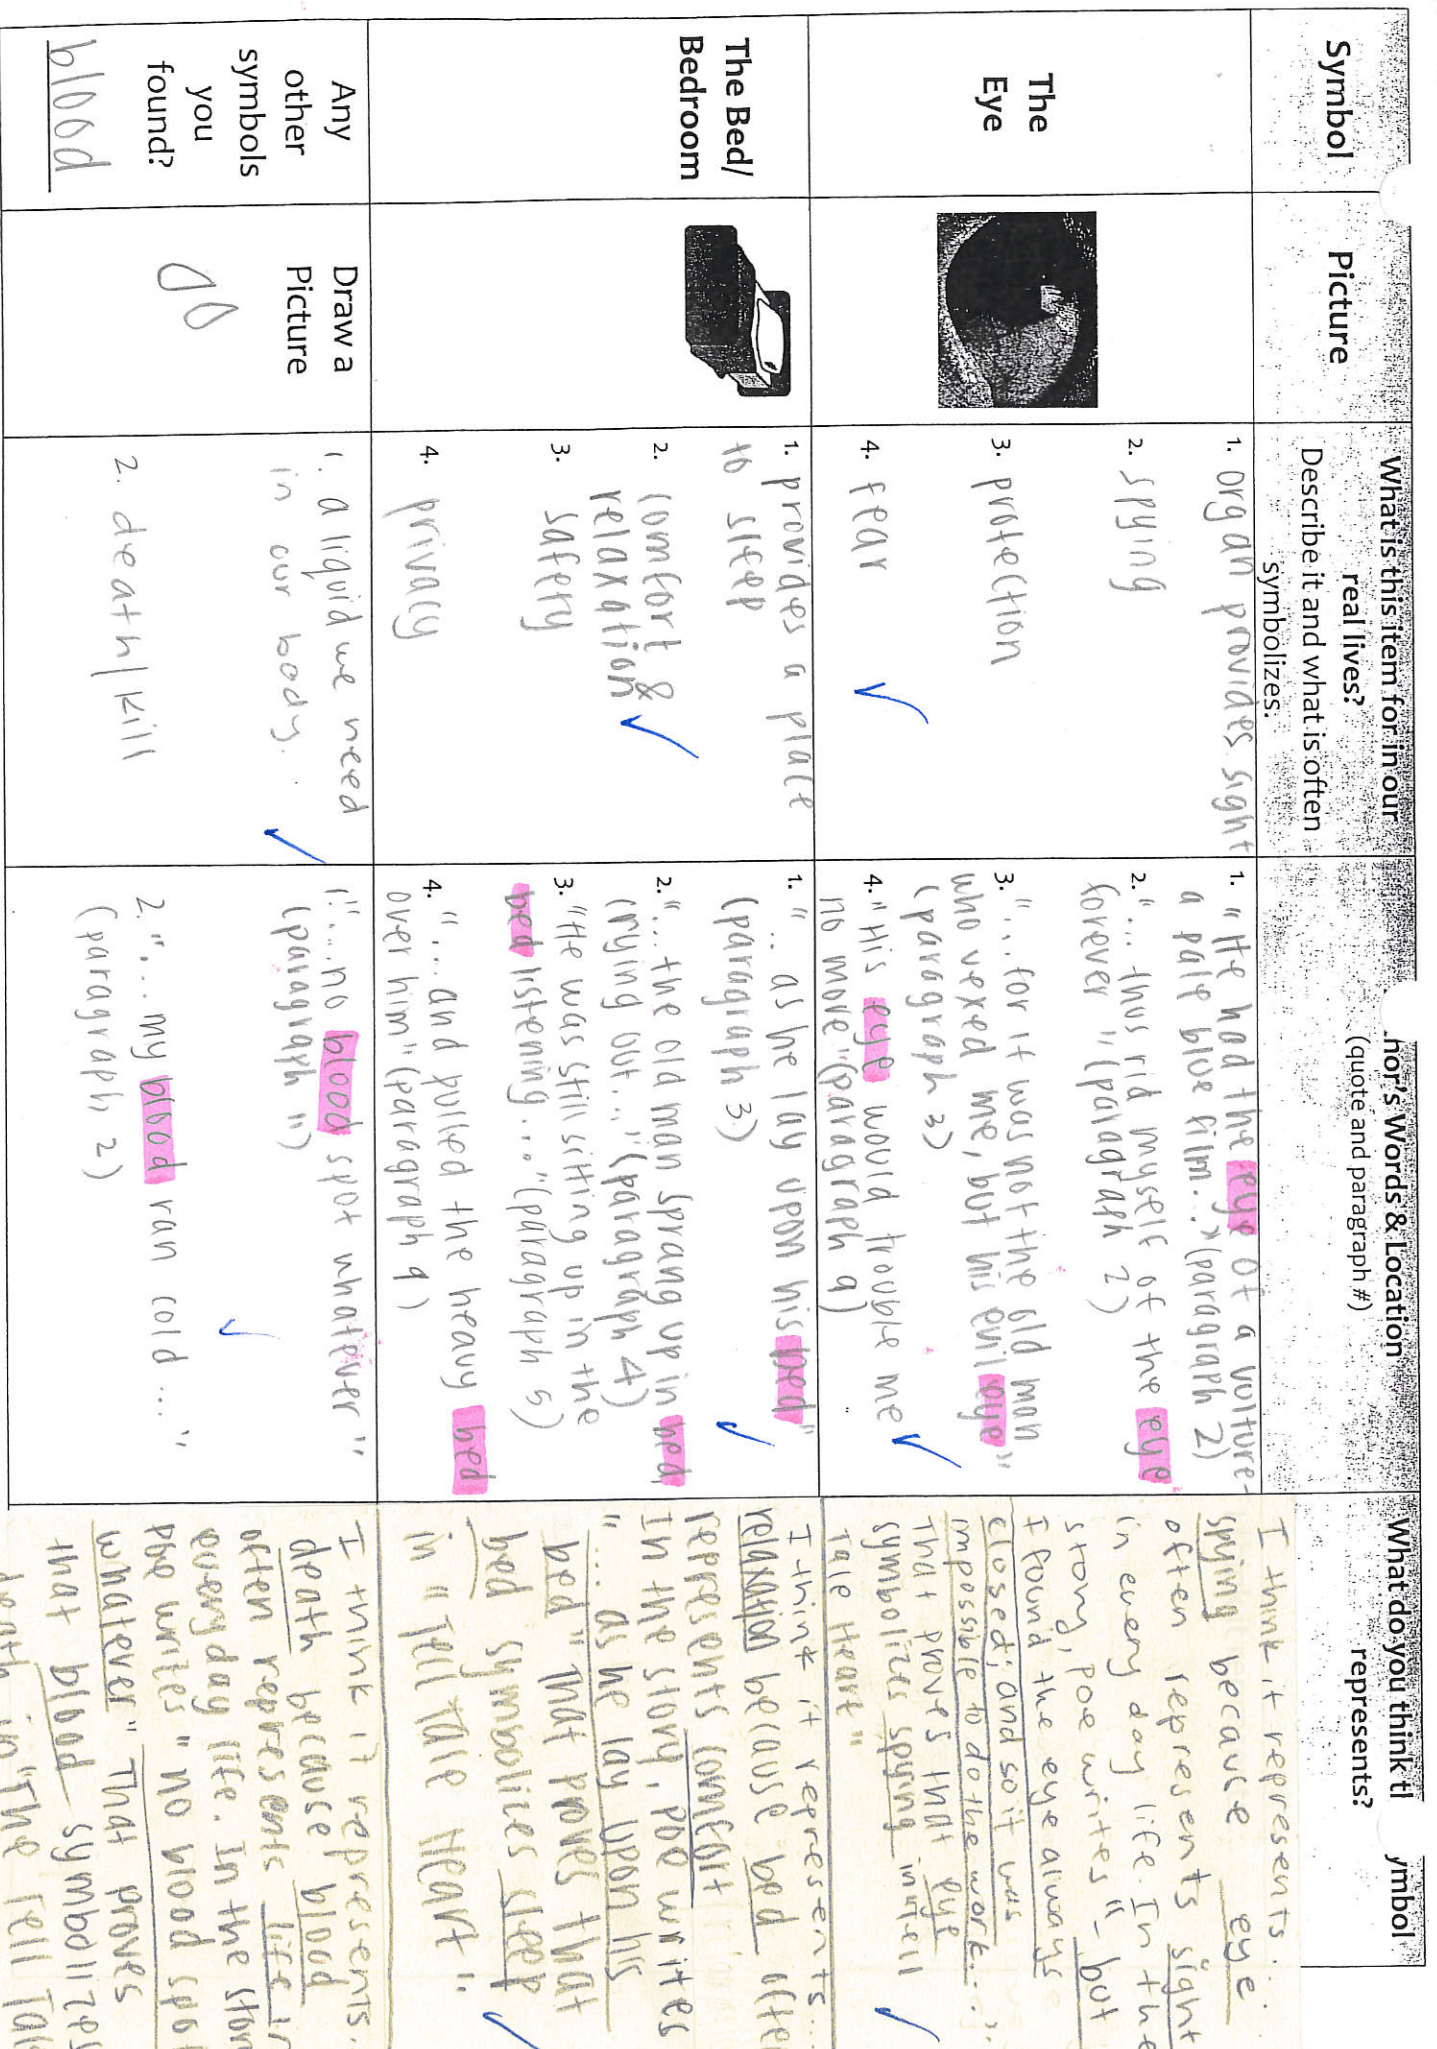 Symbol
Picture
What is this item for in our
real lives?
Describe it and what is often
symbolizes:
hor's Words & Location
(quote and paragraph #)
What do you think tl ymbol
represents?
The
Eye
1. organ provides sight
2. spying
3. protection
4. fear
1. "He had the eye of a vulture-
a pale blue film..."(paragraph 2)
2. "...thus rid myself of the eye
forever"(paragraph 2)
3. "...for it was not the old man
who vexed me, but his evil eye"
(paragraph 3)
4. "His eye would trouble me
no move"(paragraph 9)
I think it represents...
spying because eye
often represents sight
in every day life. In the
story, poe writes "- but
I found the eye always
closed; and so it was
impossible to do the work...".
That proves that eye
symbolizes spying in "tell
Tale Heart"
The Bed/
Bedroom
1. provides a place
to sleep
2. comfort &
relaxation
3. safety
4. privacy
1. "...as he lay upon his bed"
(paragraph 3)
2. "...the old man sprang up in bed,
crying out..."(paragraph 4)
3. "He was still sitting up in the
bed listening..."(paragraph 5)
4. "...and pulled the heavy bed
over him"(paragraph 9)
I think it represents...
relaxation because bed often
represents comfort
In the story, poe writes
"...as he lay upon his
bed" That proves that
bed symbolizes sleep
in "Tell Tale Heart".
Any
other
symbols
you
found?
blood
Draw a
Picture
1. a liquid we need
in our body.
2. death/kill
1. "...no blood spot whatever"
(paragraph 11)
2. "...my blood ran cold..."
(paragraph 2)
I think it represents.
death because blood
often represents life in
everyday life. In the stor
poe writes "no blood spot
whatever" That proves
that blood symbolizes
death in "The Tell Tale